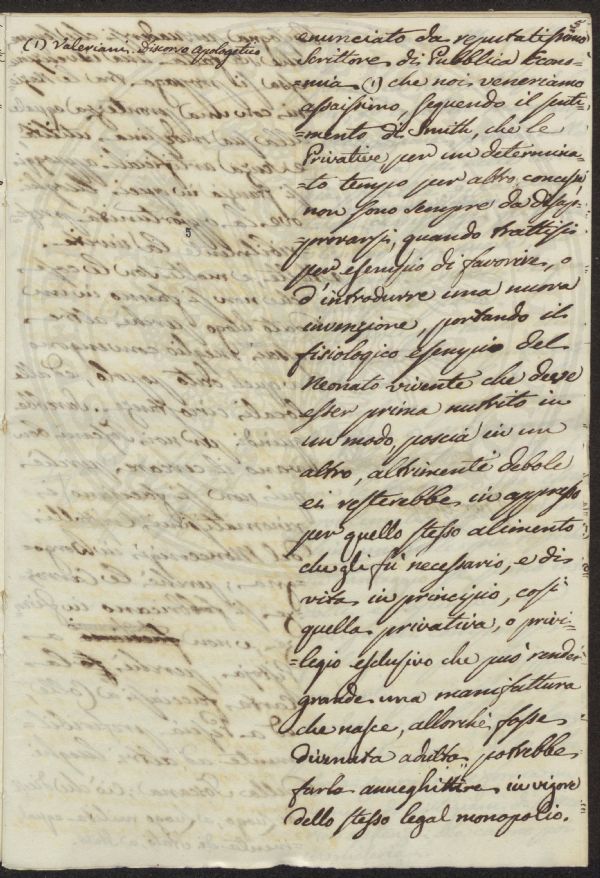 5
(1) Valeriani. Discorso Apologetico
enunciato da reputatissimo
Scrittore di Pubblica Econo=
=mia (1) che noi veneriamo
assaissimo, seguendo il senti=
=mento di Smith, che le
Privative per un determina=
=to tempo per altro concesse
non sono sempre da disap=
=provarsi, quando trattisi
per esempio di favorire, o
d'introdurre una nuova
invenzione, portando il
fisiologico esempio del
Neonato vivente che deve
esser prima nutrito in
un modo, poscia in un
altro, altrimenti debole
ei resterebbe in appresso
per quello stesso alimento
che gli fù necessario, e di
vita in principio, così
quella privativa, o privi=
=legio esclusivo che può render
grande una manifattura
che nasce, allorchè fosse
divenuta adulta, potrebbe
farla anneghittire in vigore
dello stesso legal monopolio.
5